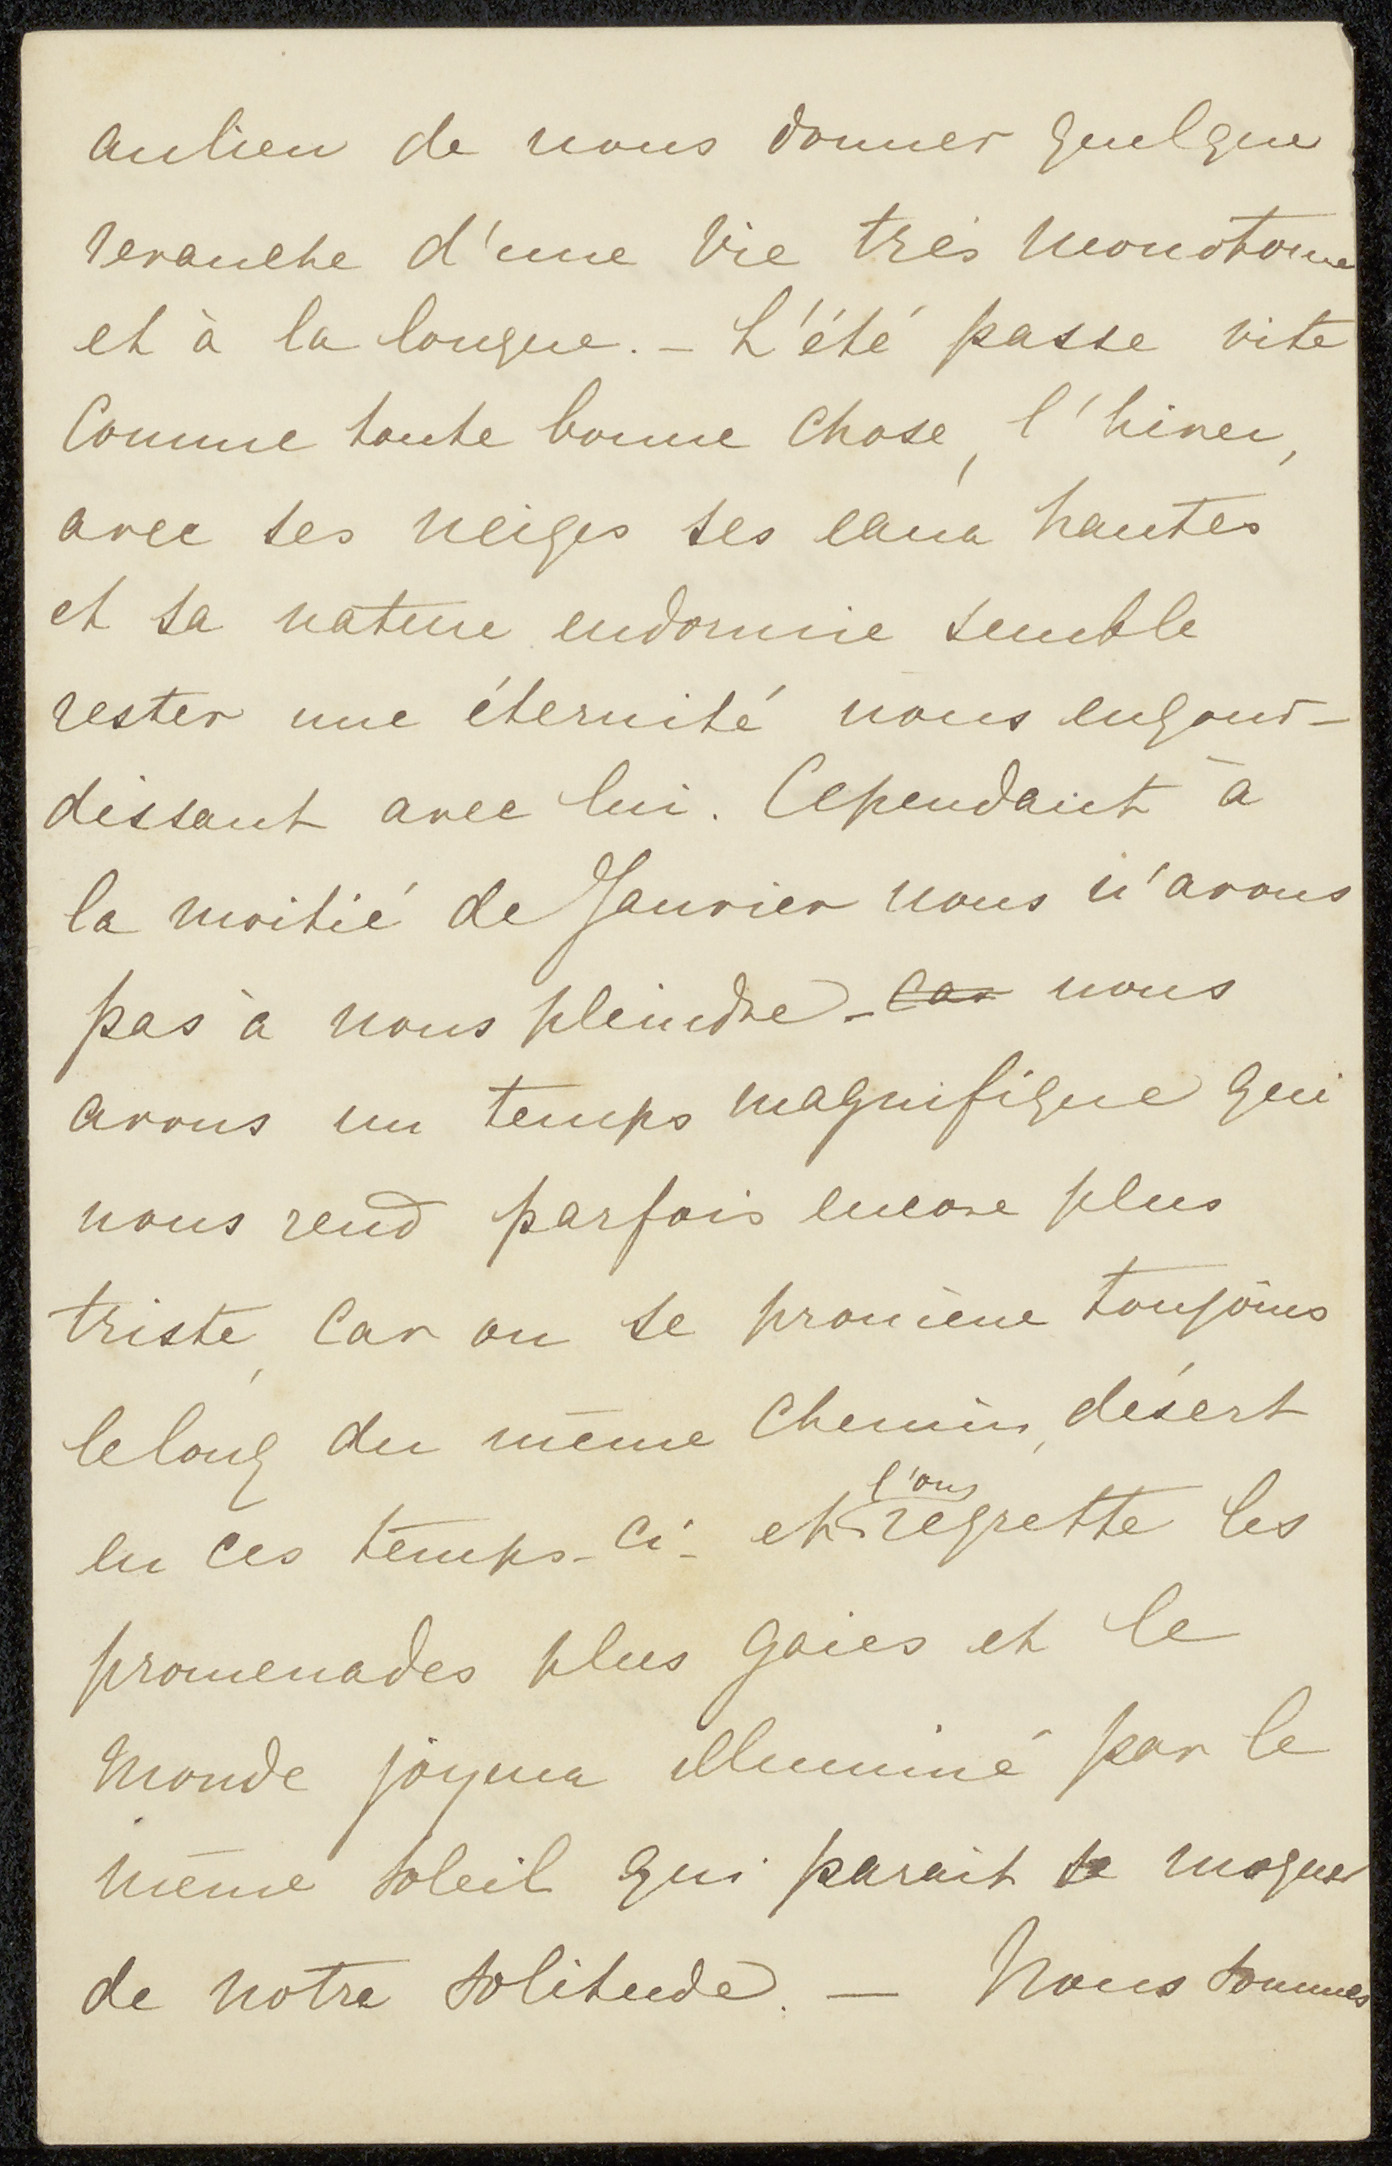 aulieu de nous donner quelque
revanche d'une vie très monotone
et à la longue. - L'été passe vite
Comme toute bonne chose, l'hiver,
avec ses neiges ses eaux hautes
et sa nature endormie semble
rester une éternité nous engour-
dissant avec lui. Cependant à
la moitié de Janvier nous n'avons
pas à nous pleindre - car nous
avons un temps magnifique qui
nous rend parfois encore plus
triste, car on se promène toujours
le long du même chemin, désert
en ces temps-ci - et l'on regrette les
promenades plus gaies et le
monde joyeux illuminé par le
même soleil qui parait se moquer
de notre solitude. — Nous sommes